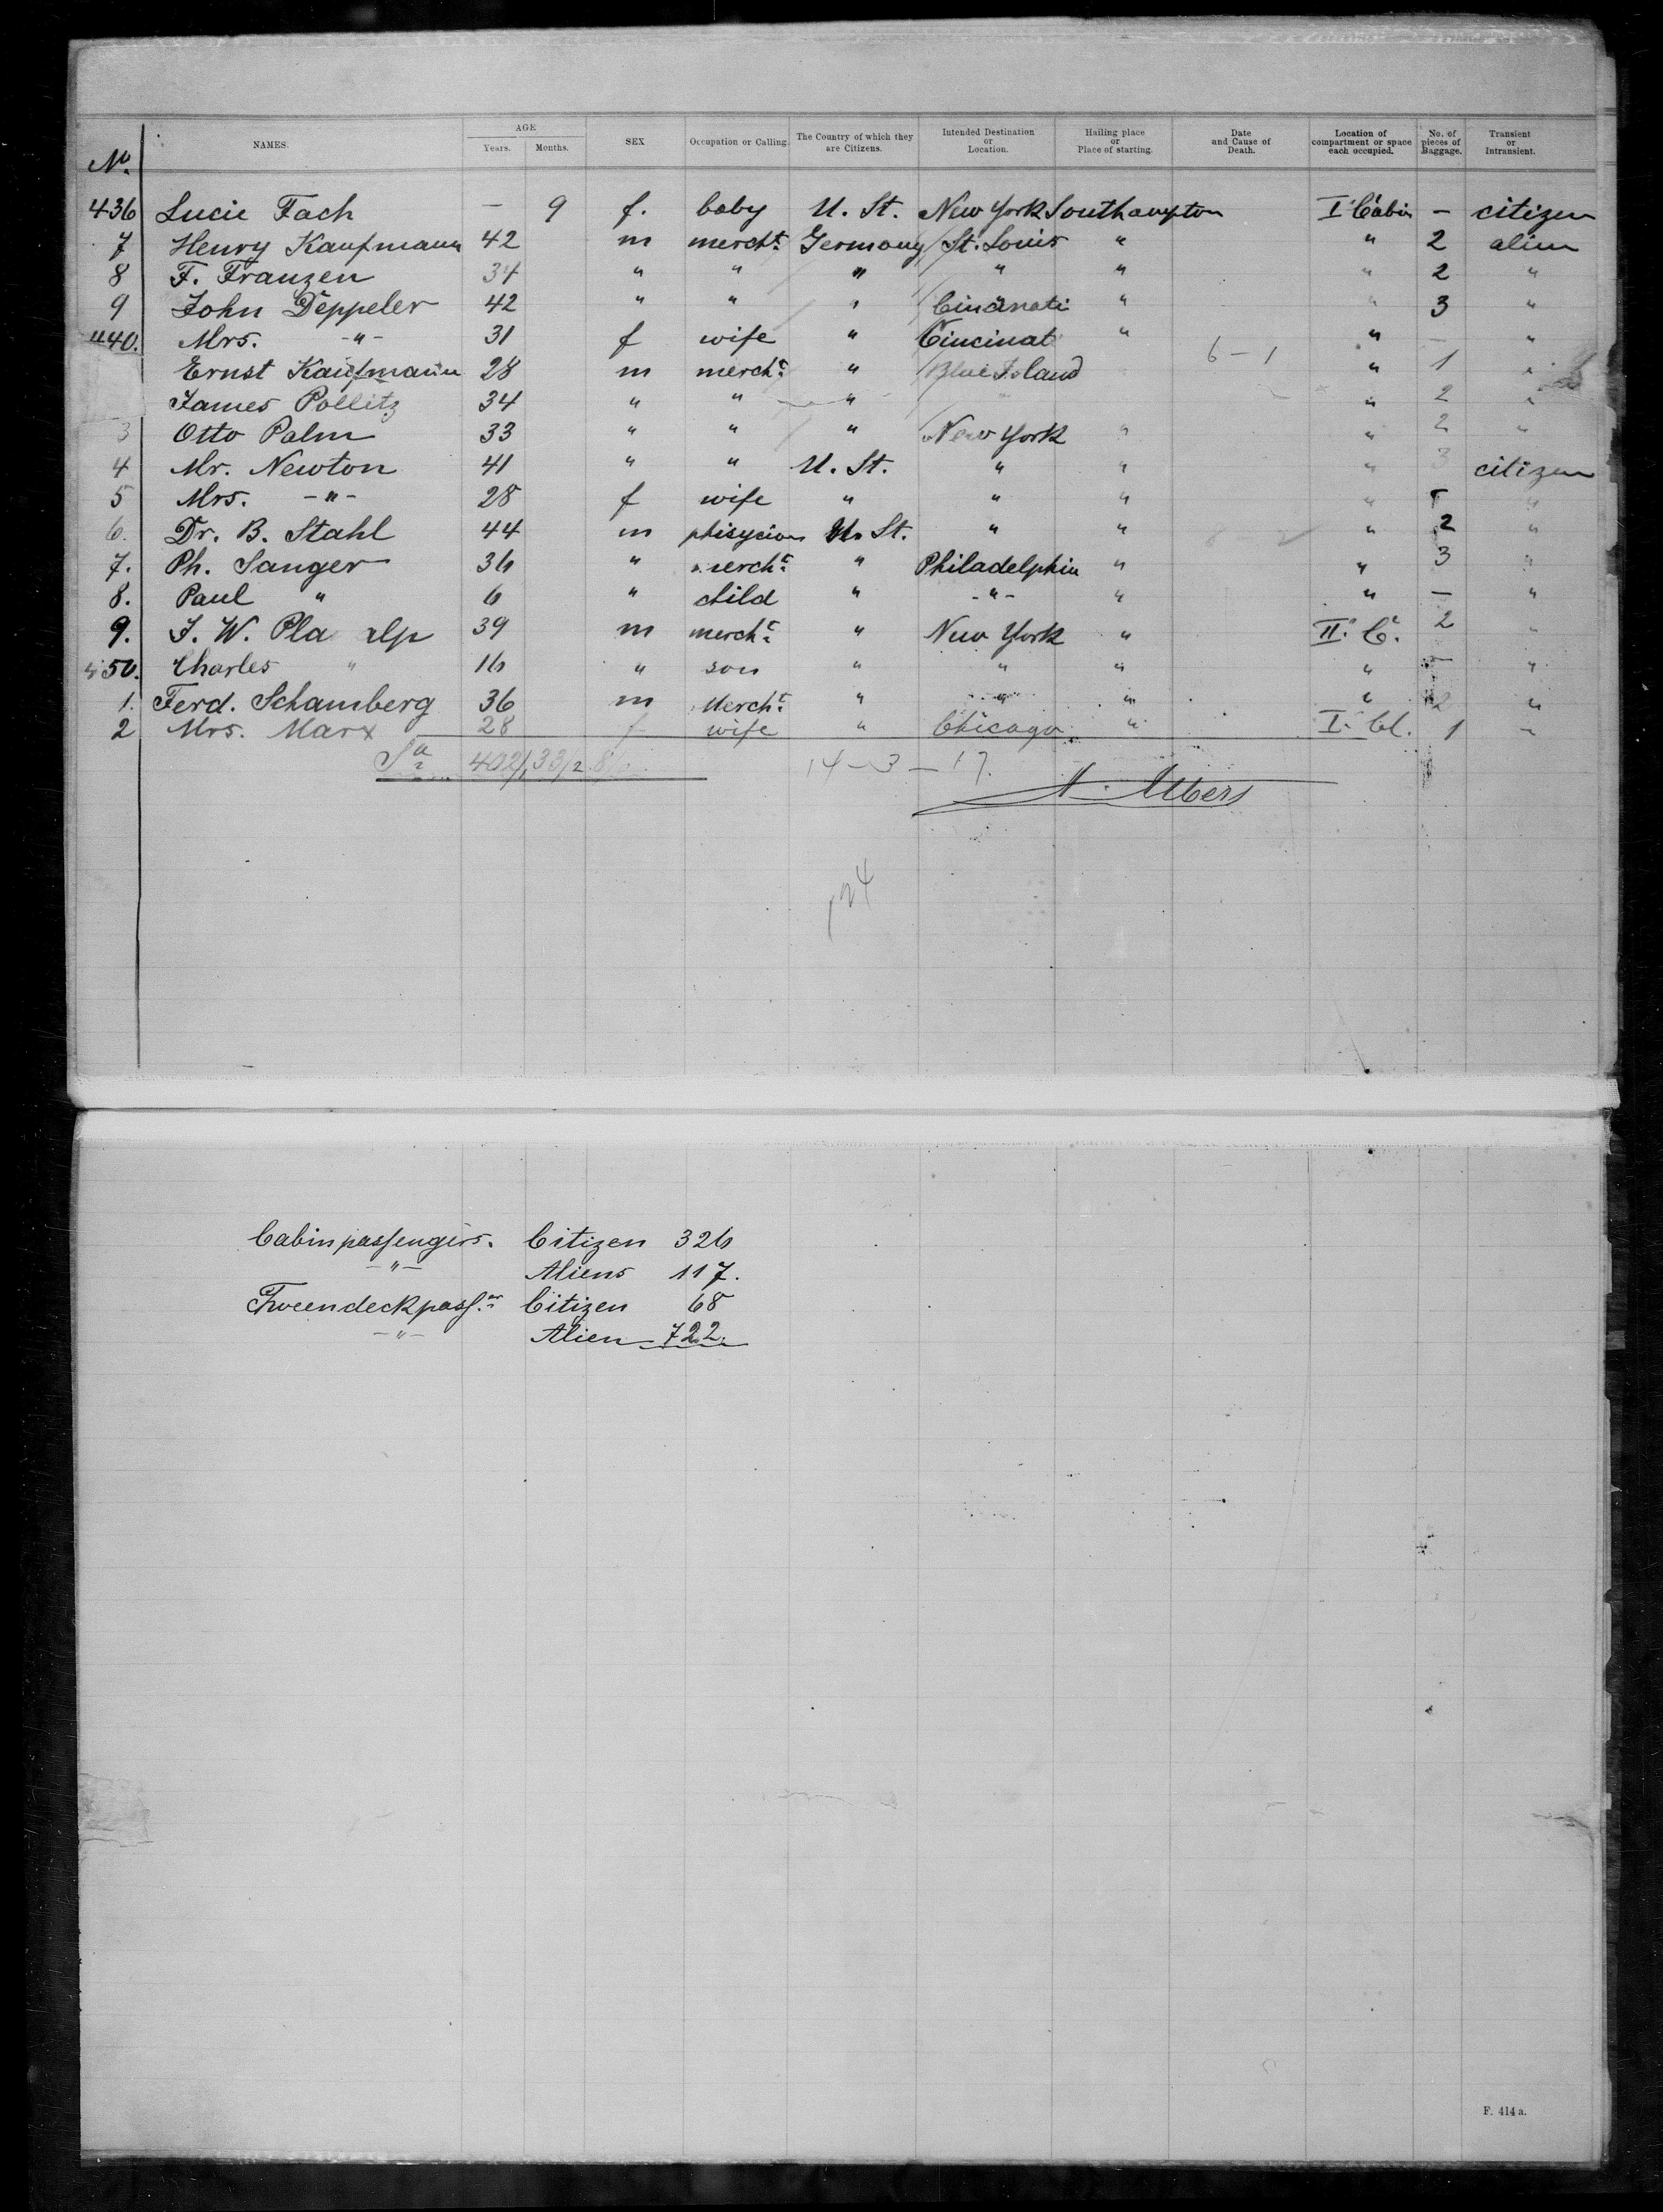 No. NAMES. AGE Years. Months. SEX Occupation or Calling. The Country of which they are Citizens. Intended Destination or Location. Hailing place or Place of starting. Date and Cause of Death. Location of compartment or space each occupied. No. of pieces of Baggage. Transient or Intransient.
436 Lucie Fach — 9 f. baby U. St. New York Southampton I Cabin — citizen
7 Henry Kaufmann 42 m mercht. Germany St. Louis " " 2 alien
8 F. Franzen 34 " " " " " " 2 "
9 John Deppeler 42 " " " Cincinati " " 3 "
440. Mrs. -"- 31 f wife " Cincinat " " — "
Ernst Kaufmann 28 m mercht. " Blue Island 6 - 1 " 1 "
James Pollitz 34 " " " " 2 "
3 Otto Palm 33 " " " New York " " 2 "
4 Mr. Newton 41 " " U. St. " " " 3 citizen
5 Mrs. -"- 28 f wife " " " " - "
6. Dr. B. Stahl 44 m phisycion U. St. " " " 2 "
7. Ph. Sanger 36 " mercht. " Philadelphia " " 3 "
8. Paul " 6 " child " -"- " " — "
9. J. W. Pla 39 m mercht. " New York " II. C. 2 "
450. Charles " 16 " son " " " " — "
1. Ferd. Schamberg 36 m Mercht. " " " " 2 "
2 Mrs. Marx 28 f wife " Chicago " I. Cl. 1 "
Sa 402/, 33/2 8/ 14 - 3 - 17.
A. Albers
124
Cabinpassengers. Citizen 326
-"- Aliens 117.
Tweendeckpass. Citizen 68
-"- Alien 722.
F. 414 a.